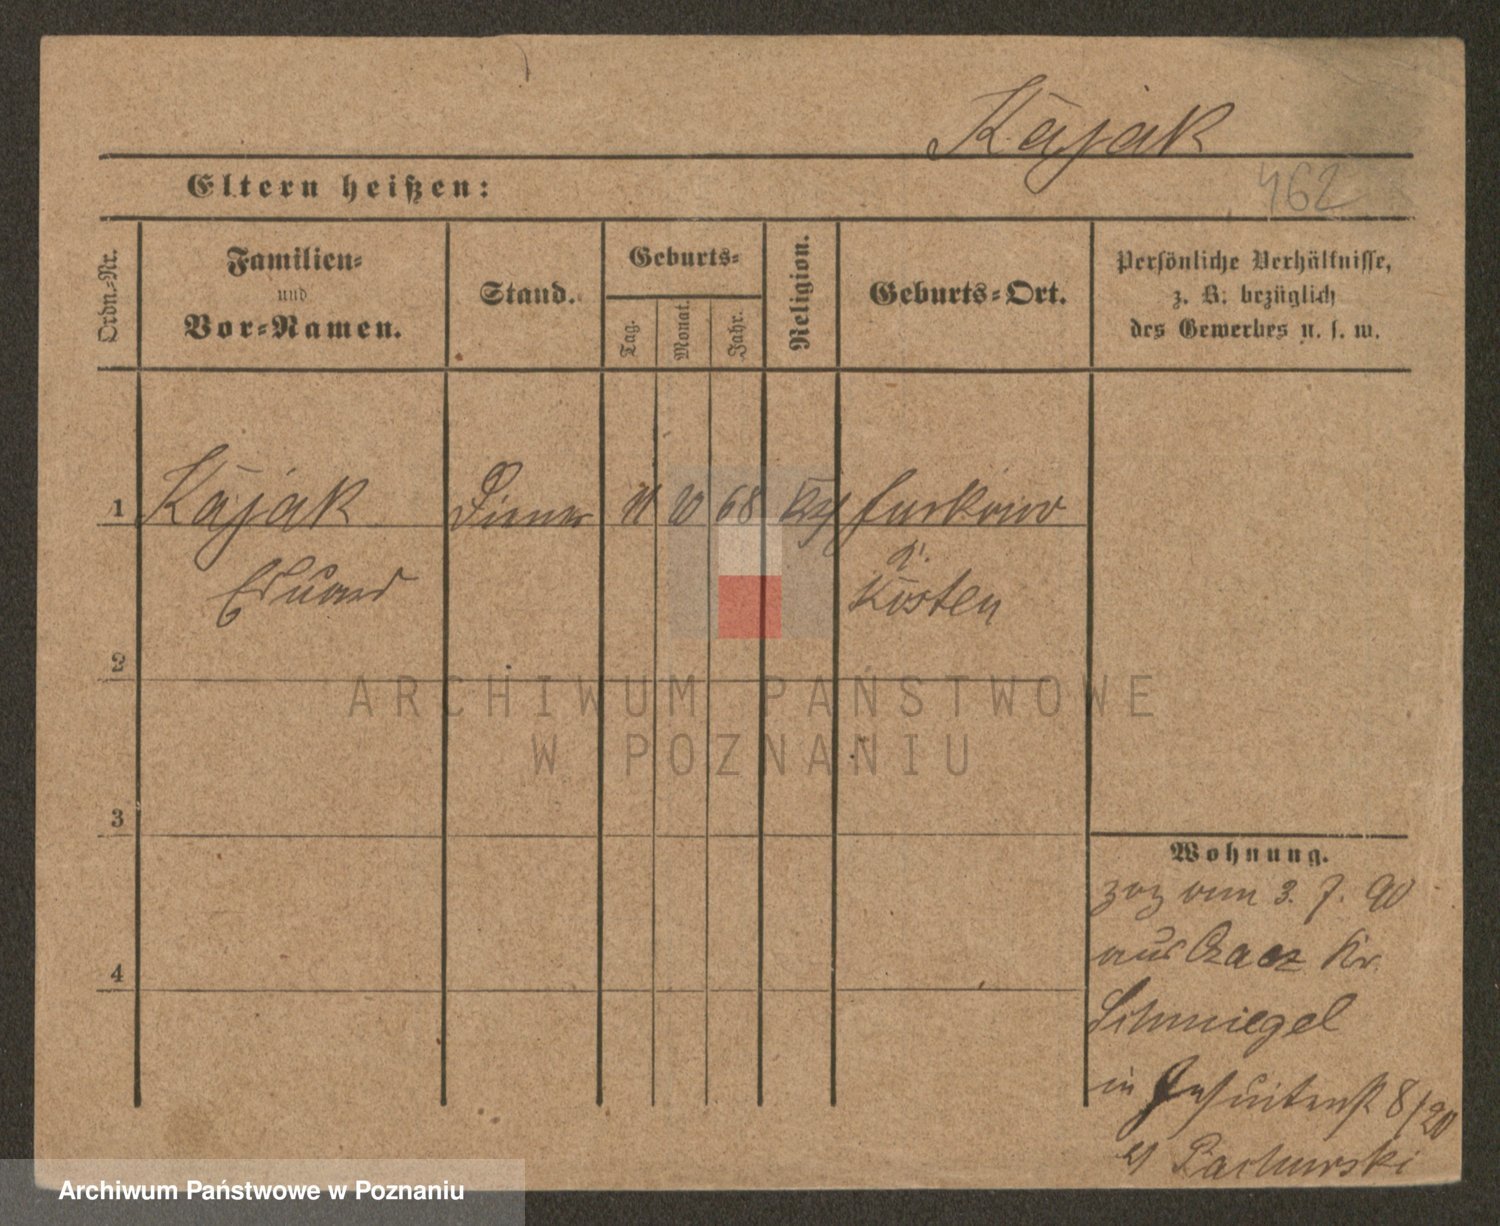 Kajak
462
Eltern heißen:
Ordn.-Nr.
Familien-
und
Vor-Namen.
Stand.
Geburts-
Tag.
Monat.
Jahr.
Religion.
Geburts-Ort.
Persönliche Verhältnisse,
z. B. bezüglich
des Gewerbes u. s. w.
1
Kajak
Diener
11
10
68
Kosten
Eduard
2
3
4
Wohnung.
zog vom 3. 7. 90
aus Czacz Kr.
Schmiegel
in Jesuitenstr 8/20
ARCHIWUM PAŃSTWOWE
W POZNANIU
Archiwum Państwowe w Poznaniu